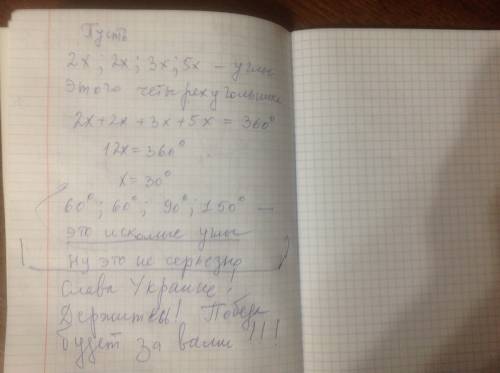 Пусть
2х; 2х; 3х; 5х – углы
этого четырехугольника
2х+2х+3х+5х = 360°
12х=360°
х=30°
60°; 60°; 90°; 150° —
это искомые углы
ну это не серьезно
Слава Украине!
Держитесь! Победа
будет за вами!!!